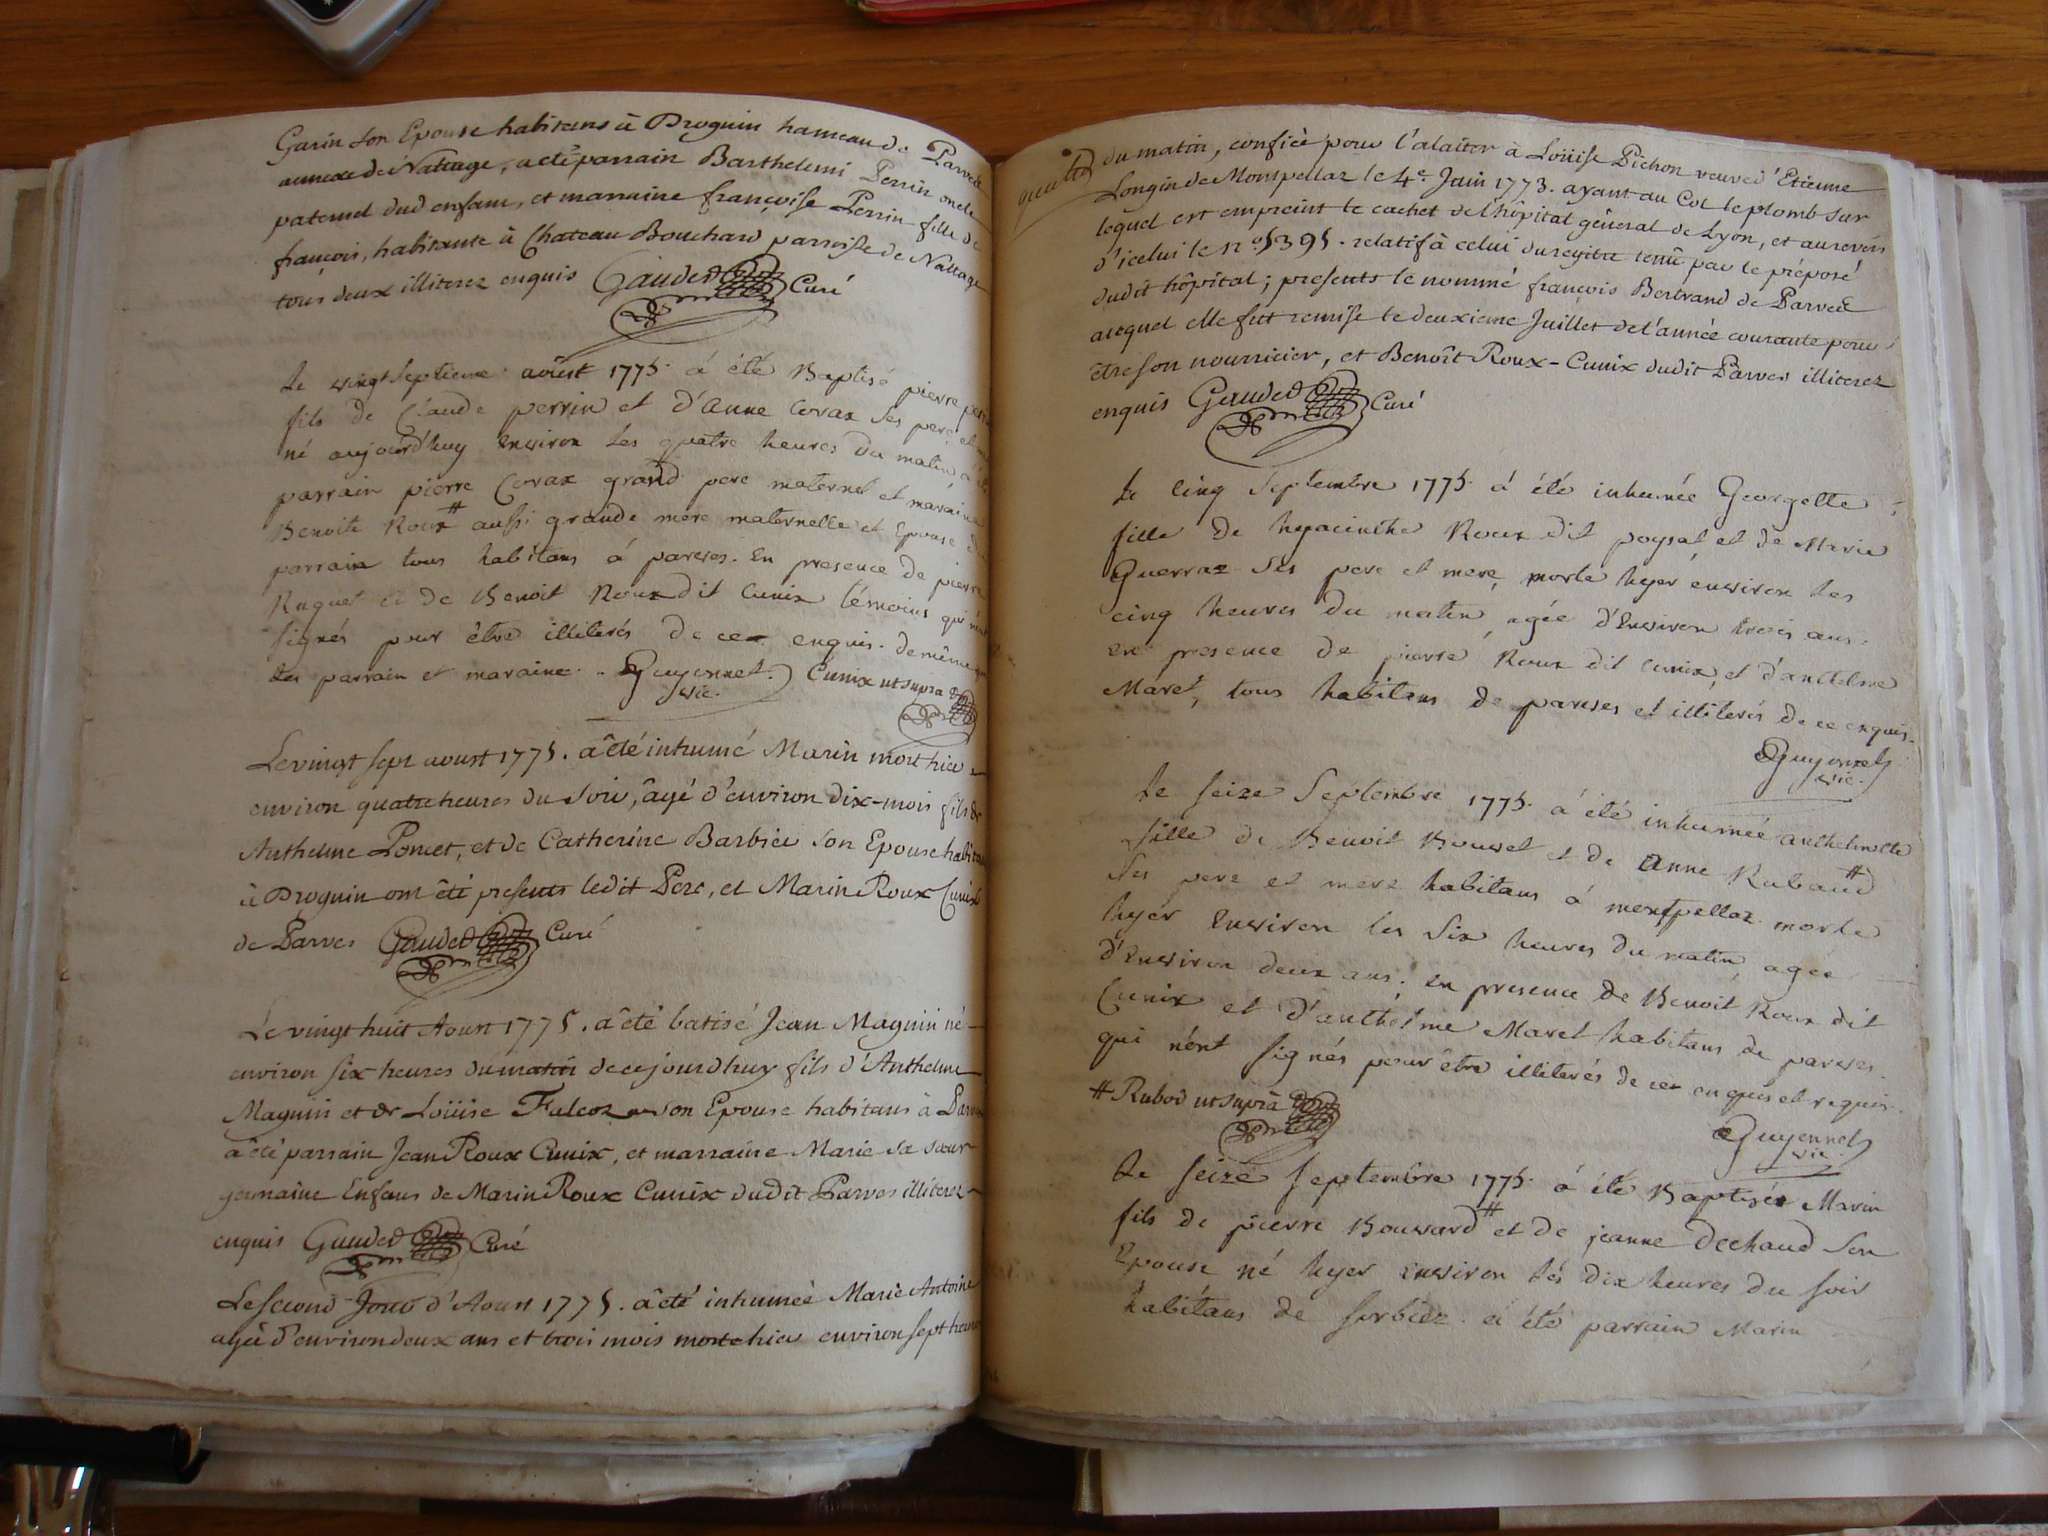 Garin son Epouse habitans à Proguin hameau de Parves
annexe de Nattage, a été parrain Barthelemi Perrin oncle
paternel dud enfant, et marraine françoise Perrin fille de
françois, habitante à Chateau Bouchard parroisse de Nattage
tous deux illiterez enquis Gaudet Curé
Le vingt septieme aoust 1775. á été Baptisé pierre
fils de Claude perrin et d'anne Coraz ses pere et
né aujourd'huy environ les quatre heures du matin a
parrain pierre Coraz grand pere maternel et maraine
Benoite Roux # aussi grande mere maternelle et Epouse du
parrain tous habitans á parves. En presence de pierre
Ruguet et de Benoit Roux dit Cunix témoins qui n'ont
signés pour être illiterés de ce enquis. de même que
les parrain et maraine. Guyonnet. # Cunix ut supra
vic.
Le vingt sept aoust 1775. a été inhumé Marin mort hier
environ quatre heures du soir, âgé d'environ dix-mois fils de
Anthelme Poncet, et de Catherine Barbier son Epouse
à Proguin ont été presents ledit Pere, et Marin Roux Cunix
de Parves Gaudet Curé
Le vingt huit Aoust 1775. a été batisé Jean Magnin né
environ six heures du matin de cejourdhuy fils d'Anthelme
Magnin et de Loüise Falcoz son Epouse habitans à Parves
a été parrain Jean Roux Cunix, et marraine Marie sa sœur
germaine Enfans de Marin Roux Cunix dudit Parves illiterez
enquis Gaudet Curé
Le second Jour d'Aoust 1775. a été inhumée Marie Antoine
agée d'environ deux ans et trois mois morte hier environ sept heures
du matin, confiée pour l'alaiter à Loüise Pichon veuve d'Etienne
Longin de Montpellaz le 4e. Juin 1773. ayant au Col le plomb sur
lequel est empreint le cachet de l'hôpital géneral de Lyon, et au revers
d'icelui le no. 5395. relatif à celui du regitre tenû par le préposé
dudit hôpital; presents le nommé françois Bertrand de Parves
auquel elle fut remise le deuxieme Juillet de l'année courante pour
être son nourricier, et Benoît Roux-Cunix dudit Parves illiterez
enquis Gaudet Curé
Le Cinq Septembre 1775. á été inhumée Georgette
fille de hyacinthe Roux dit poysat et de Marie
Guerraz ses pere et mere, morte hyer environ les
cinq heures du matin, agée d'environ trois ans.
en presence de pierre Roux dit Cunix, et d'anthelme
Maret, tous habitans de parves et illiterés de ce enquis.
Guyonnet
vic.
Le seize Septembre 1775. á été inhumée anthelmette
fille de Benoit Bouvet et de anne Rubaud #
ses pere et mere habitans á montpellaz morte
hyer environ les six heures du matin, agée
d'environ deux ans. en presence de Benoit Roux dit
Cunix et d'anthelme Maret habitans de parves.
qui n'ont signés pour être illiterés de ce enquis et requis.
# Rubod ut supra
Guyonnet
vic.
Le seize septembre 1775. á été Baptisé Marin
fils de pierre Bouvard # et de jeanne Dechaud son
Epouse né hyer environ les dix heures du soir
habitans de sorbiez. a été parrain Marin